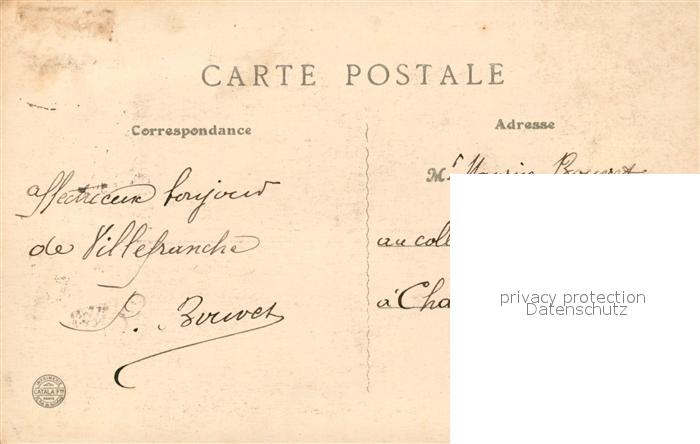 CARTE POSTALE
Correspondance
Adresse
affectueux bonjour
de Villefranche
P. Bouvet
M.r Maurice Bouvet
au coll
à Cha
privacy protection
Datenschutz
CATALA Fres
PARIS